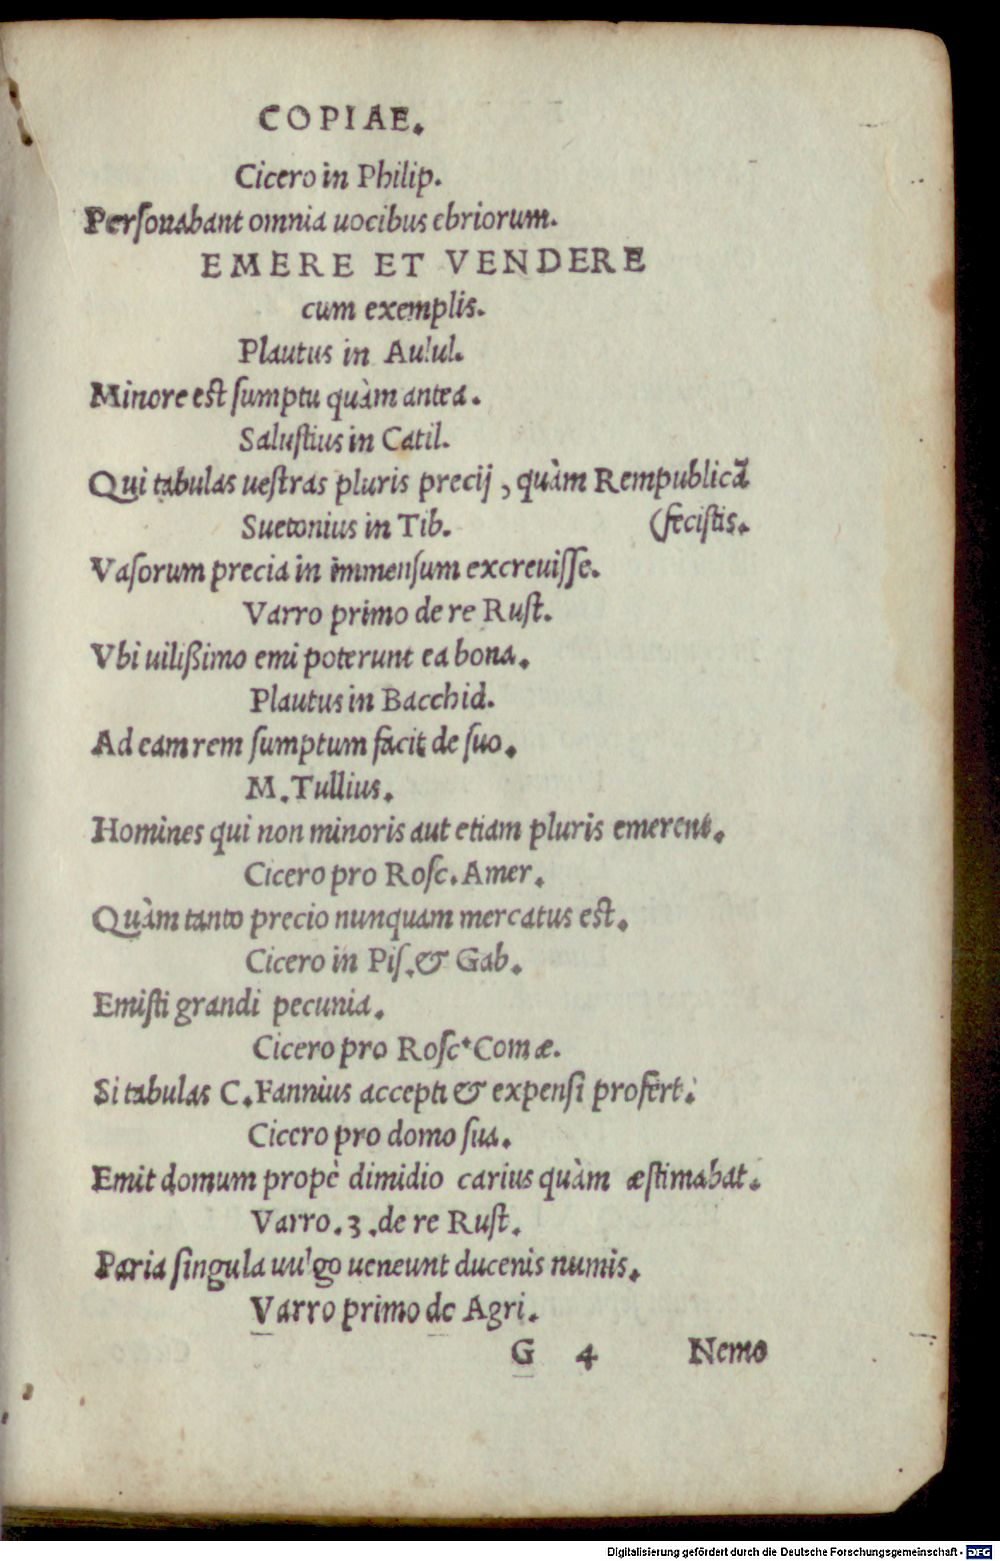 COPIAE.
Cicero in Philip.
Perſonabant omnia uocibus ebriorum.
EMERE ET VENDERE
cum exemplis.
Plautus in Aulul.
Minore eſt ſumptu quàm antea.
Saluſtius in Catil.
Qui tabulas ueſtras pluris precij, quàm Rempublicã
Suetonius in Tib. (feciſtis.
Vaſorum precia in immenſum excreuiſſe.
Varro primo de re Ruſt.
Vbi uilißimo emi poterunt ea bona.
Plautus in Bacchid.
Ad eam rem ſumptum facit de ſuo.
M. Tullius.
Homines qui non minoris aut etiam pluris emerent.
Cicero pro Roſc. Amer.
Quàm tanto precio nunquam mercatus est.
Cicero in Piſ. & Gab.
Emiſti grandi pecunia.
Cicero pro Roſc. Comæ.
Si tabulas C. Fannius accepti & expenſi profert.
Cicero pro domo ſua.
Emit domum propè dimidio carius quàm æſtimabat.
Varro. 3. de re Ruſt.
Paria ſingula uulgo ueneunt ducenis numis.
Varro primo de Agri.
G 4 Nemo
Digitalisierung gefördert durch die Deutsche Forschungsgemeinschaft - DFG